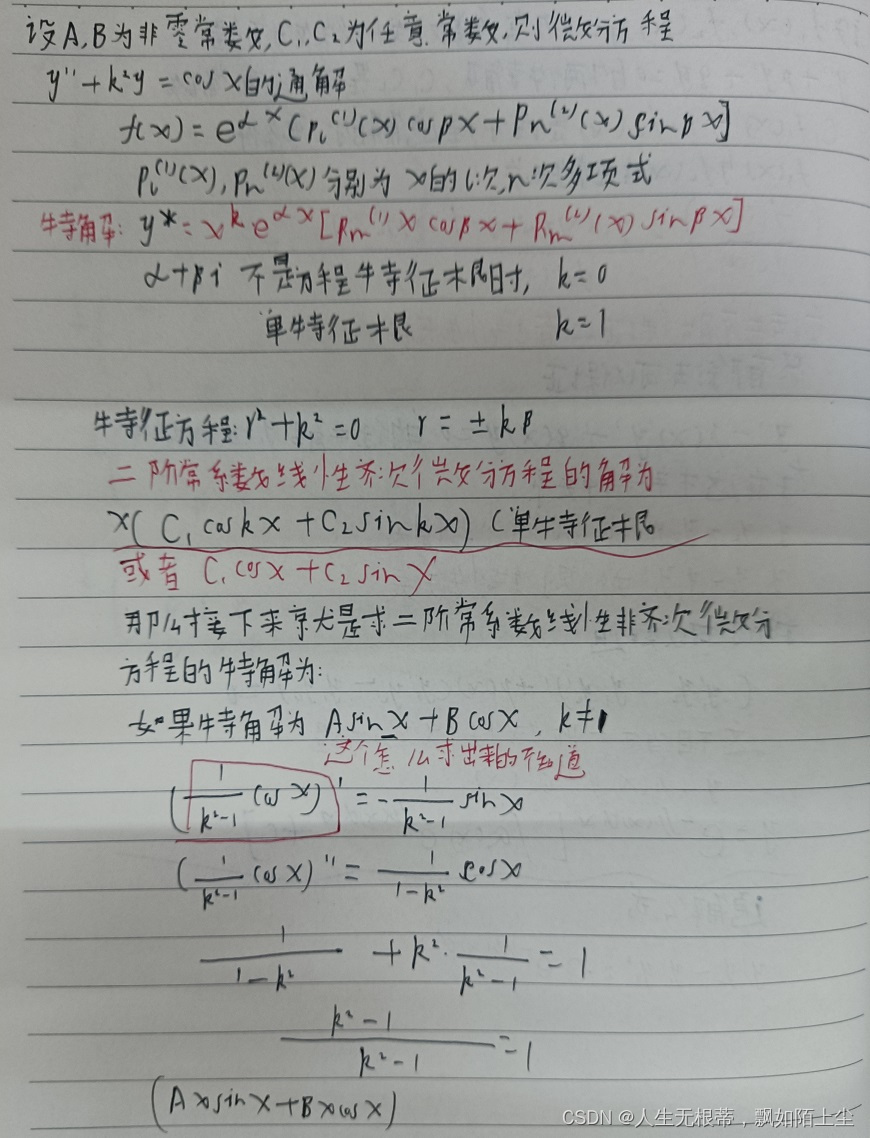 设A,B为非零常数,C₁,C₂为任意常数,则微分方程
y''+k²y=cosx的通解
f(x)=e^{αx}[P_l^{(1)}(x)cosβx+P_n^{(2)}(x)sinβx]
P_l^{(1)}(x),P_n^{(2)}(x)分别为x的l次,n次多项式
特解: y*=x^k e^{αx}[R_m^{(1)}x cosβx+R_m^{(2)}(x)sinβx]
α+βi 不是方程特征根时, k=0
单特征根 k=1
特征方程:r²+k²=0 r=±kβ
二阶常系数线性齐次微分方程的解为
x(C₁coskx+C₂sinkx) (单特征根
或者 C₁cosx+C₂sinx
那么接下来就是求二阶常系数线性非齐次微分
方程的特解为:
如果特解为 Asinx+Bcosx, k≠1
这个怎么求出来的不知道
(1/(k²-1) cosx)'=-1/(k²-1) sinx
(1/(k²-1) cosx)''=1/(1-k²) cosx
1/(1-k²) +k²·1/(k²-1)=1
(k²-1)/(k²-1)=1
(Axsinx+Bxcosx)
CSDN @人生无根蒂，飘如陌上尘